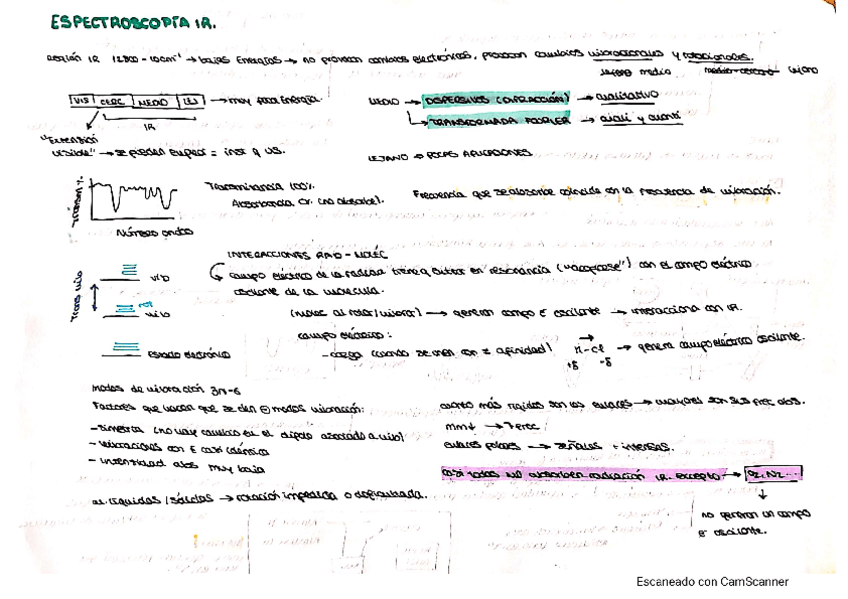 ESPECTROSCOPÍA IR.
Región IR 12800 - 10cm⁻¹ → bajas Energías → no provocan cambios electrónicos, provocan cambios vibracionales y rotacionales.
medio lejano
VIS CERC MEDIO LEJ → muy poca Energía.
IR
"Extensión
visible" → se pueden
MEDIO → DISPERSIVOS (DIFRACCIÓN) → cualitativo
→ TRANSFORMADA FOURIER → cuali y cuanti
LEJANO → POCAS APLICACIONES
Transm %
Número ondas
Transmitancia 100%.
Absorbancia 0. (no absorbe).
Frecuencia que se absorbe coincide con la frecuencia de vibración.
INTERACCIONES RAD - MOLÉC
campo eléctrico de la radiac tiene q entrar en resonancia ("acoplarse") con el campo eléctrico
oscilante de la molécula.
Trans vib
vib
rot
vib
estado electrónico
(moléc al rotar/vibrar) → generan campo E oscilante → interacciona con IR.
campo eléctrico:
- carga (cuando se unen con ≠ afinidad)
H-Cl → genera campo eléctrico oscilante.
+δ -δ
Modos de vibración 3n-6
Factores que hacen que se den ⊖ modos vibración:
- simetría (no hay cambio en el dipolo asociado a vib)
- vibraciones con E casi idéntica
- intensidad abs muy baja
cuanto más rígidos son los enlaces → mayores son sus frec abs.
mm↓ → ↑ frec
enlaces polares → señales + intensas.
casi todas mol absorben radiación IR excepto → O2, N2...
no generan un campo
E oscilante.
en líquidos/sólidos → rotación impedida o dificultada.
Escaneado con CamScanner